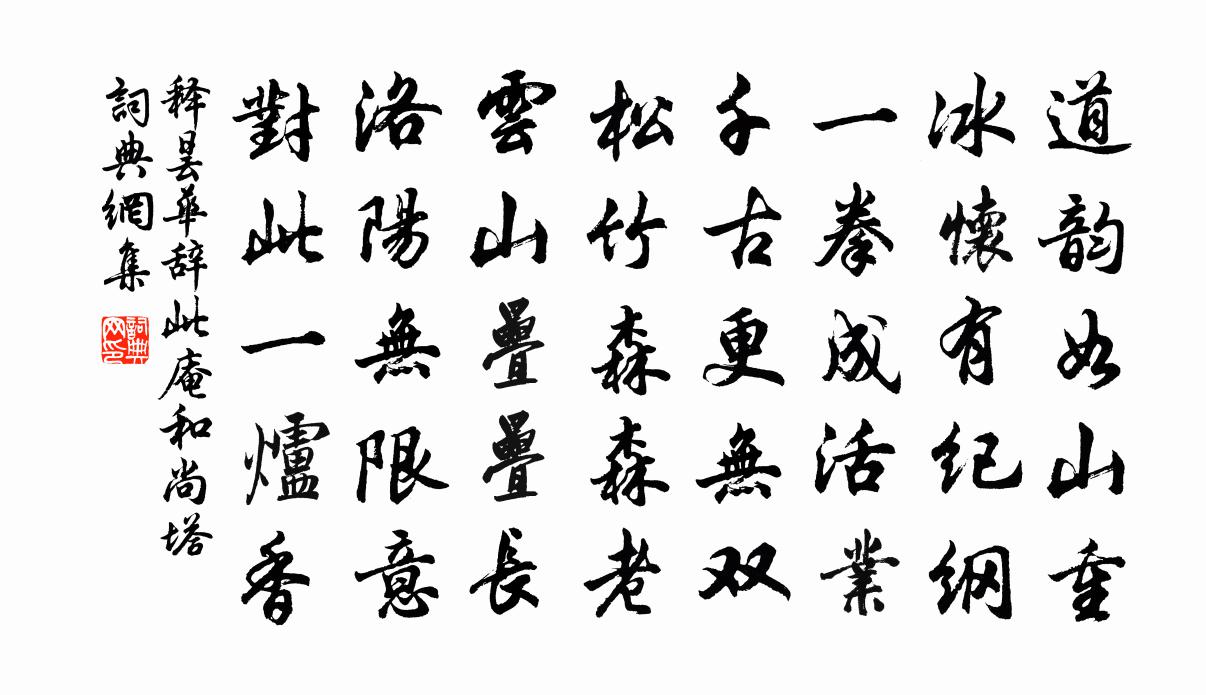 道韵如山重
冰懷有纪纲
一拳成活業
千古更無双
松竹森森老
雲山疊疊長
洛陽無限意
對此一爐香
释曇華辞此庵和尚塔
詞典網集
詞典网印